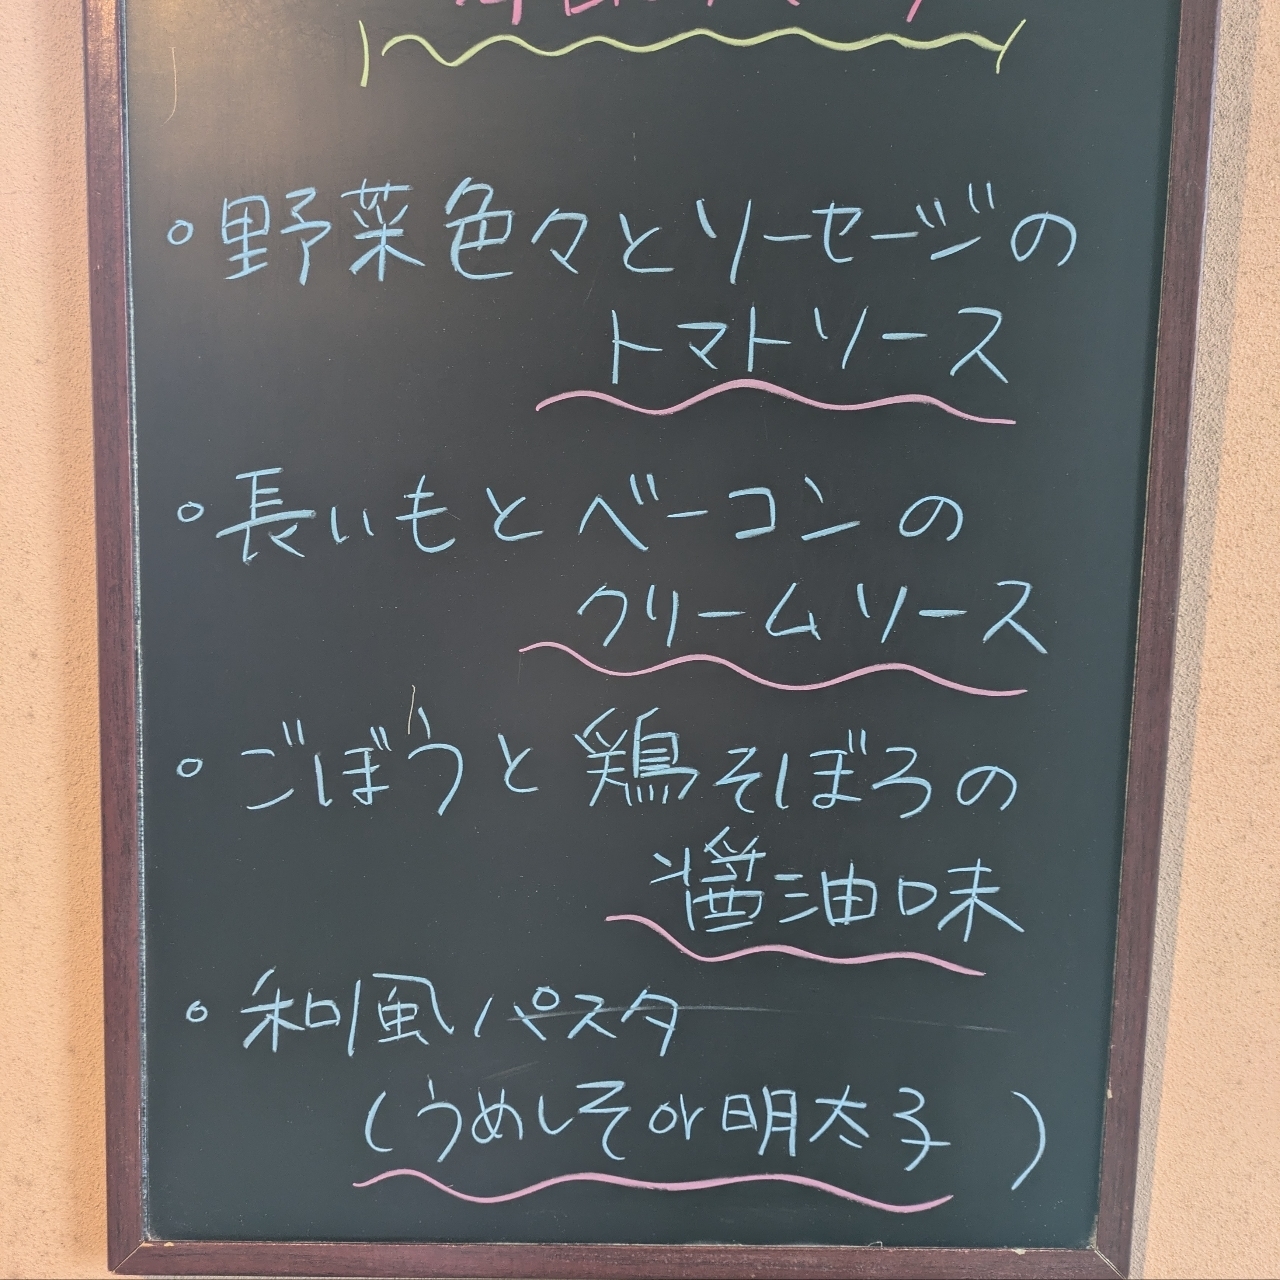 野菜色々とソーセージの
トマトソース
長いもとベーコンの
クリームソース
ごぼうと鶏そぼろの
醤油味
和風パスタ
(うめしそor明太子)